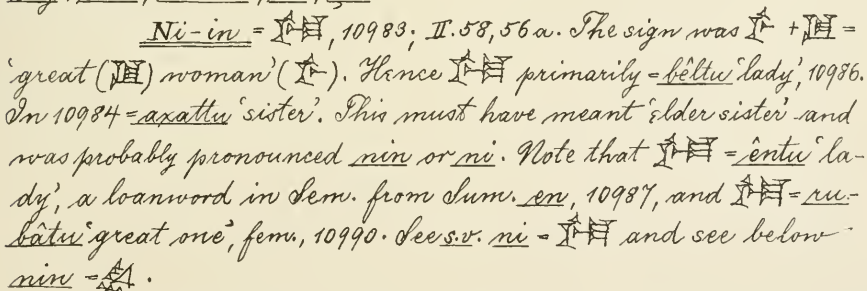 Ni-in = 𒊩𒌆, 10983; II. 58, 56 a. The sign was 𒊩 + 𒌆 =
'great (𒌆) woman' (𒊩). Hence 𒊩𒌆 primarily = bêltu 'lady', 10986.
In 10984 = axattu 'sister'. This must have meant 'elder sister' and
was probably pronounced nin or ni. Note that 𒊩𒌆 = êntu 'la-
dy', a loanword in Sem. from Sum. en, 10987, and 𒊩𒌆 = ru-
bâtu 'great one', fem., 10990. See s.v. ni = 𒊩𒌆 and see below
nin = .